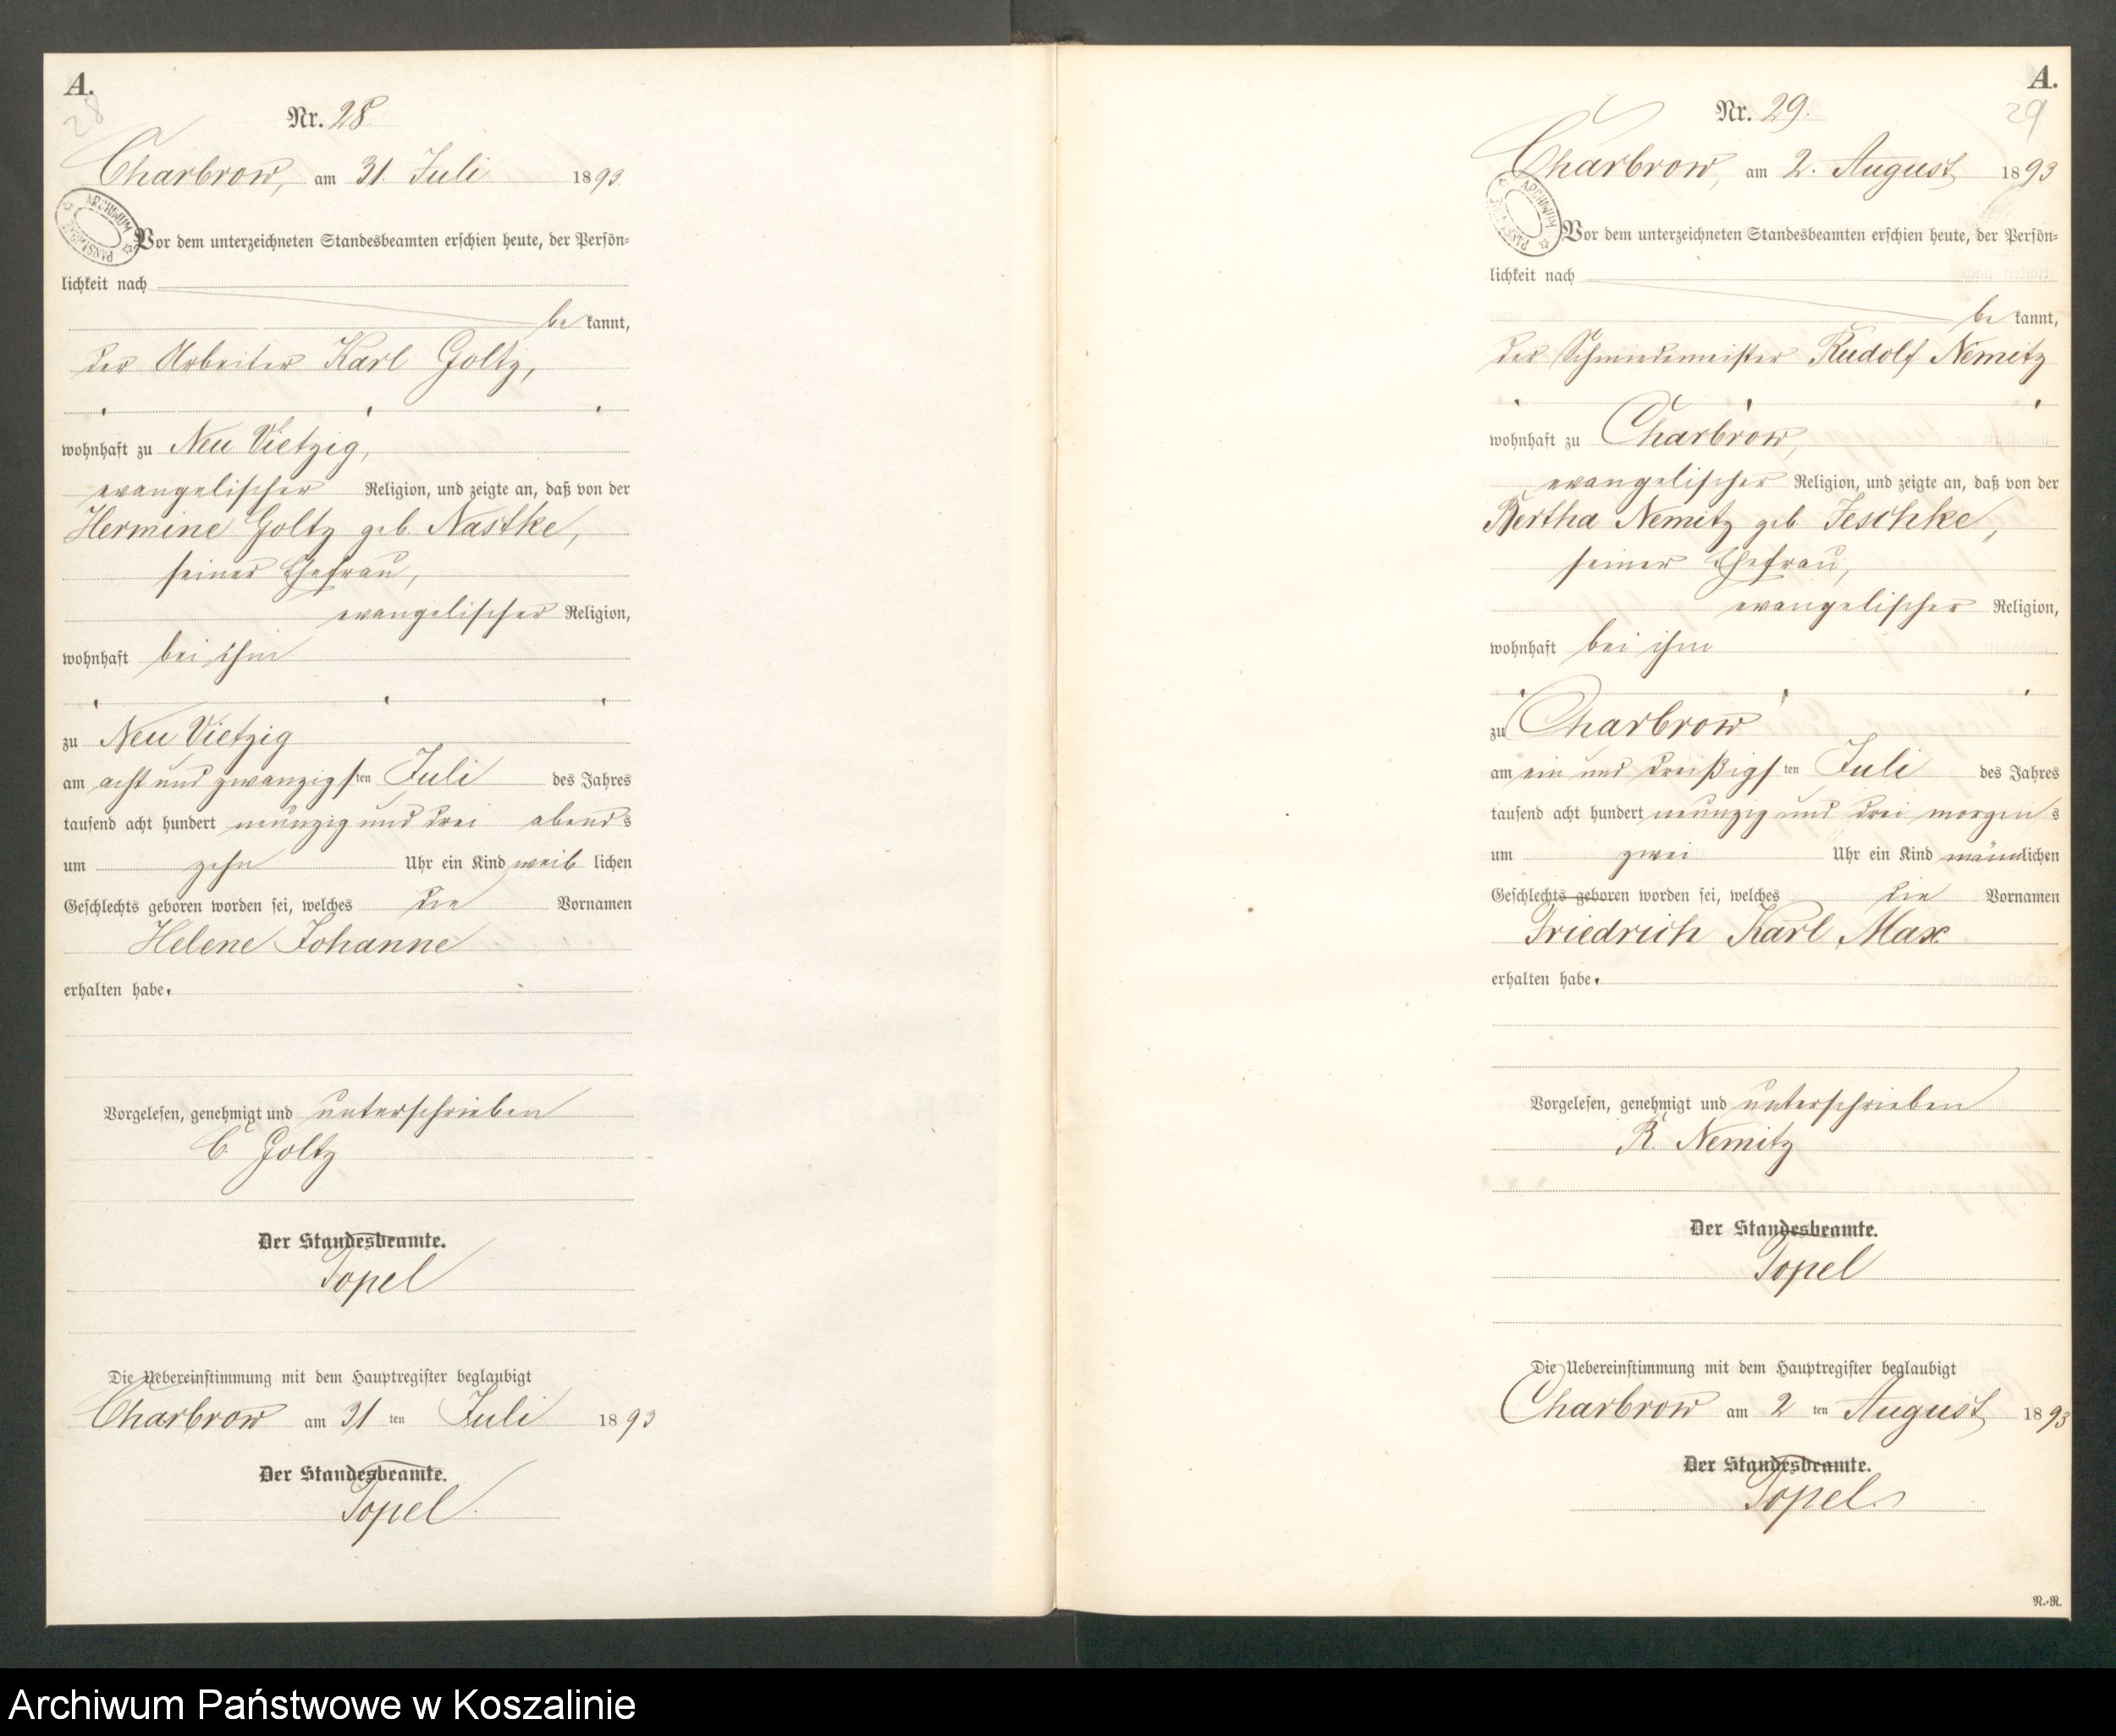 A.
28
Nr. 28.
Charbrow, am 31. Juli 1893.
ARCHIWUM PAŃSTWOWE
Vor dem unterzeichneten Standesbeamten erschien heute, der Persön=
lichkeit nach
be kannt,
der Arbeiter Karl Goltz,
wohnhaft zu Neu Vietzig,
evangelischer Religion, und zeigte an, daß von der
Hermine Goltz geb. Nastke,
seiner Ehefrau,
evangelischer Religion,
wohnhaft bei ihm
zu Neu Vietzig
am acht und zwanzigsten Juli des Jahres
tausend acht hundert neunzig und drei abends
um zehn Uhr ein Kind weiblichen
Geschlechts geboren worden sei, welches die Vornamen
Helene Johanne
erhalten habe.
Vorgelesen, genehmigt und unterschrieben
C. Goltz
Der Standesbeamte.
Topel
Die Uebereinstimmung mit dem Hauptregister beglaubigt
Charbrow am 31 ten Juli 1893
Der Standesbeamte.
Topel.
A.
29
Nr. 29.
Charbrow, am 2. August 1893
ARCHIWUM PAŃSTWOWE
Vor dem unterzeichneten Standesbeamten erschien heute, der Persön=
lichkeit nach
be kannt,
der Schmiedemeister Rudolf Nemitz
wohnhaft zu Charbrow,
evangelischer Religion, und zeigte an, daß von der
Bertha Nemitz geb. Jeschke,
seiner Ehefrau,
evangelischer Religion,
wohnhaft bei ihm
zu Charbrow
am ein und dreißigsten Juli des Jahres
tausend acht hundert neunzig und drei morgens
um zwei Uhr ein Kind männlichen
Geschlechts geboren worden sei, welches die Vornamen
Friedrich Karl Max
erhalten habe.
Vorgelesen, genehmigt und unterschrieben
R. Nemitz
Der Standesbeamte.
Topel
Die Uebereinstimmung mit dem Hauptregister beglaubigt
Charbrow am 2 ten August 1893
Der Standesbeamte.
Topel.
N.-R.
Archiwum Państwowe w Koszalinie